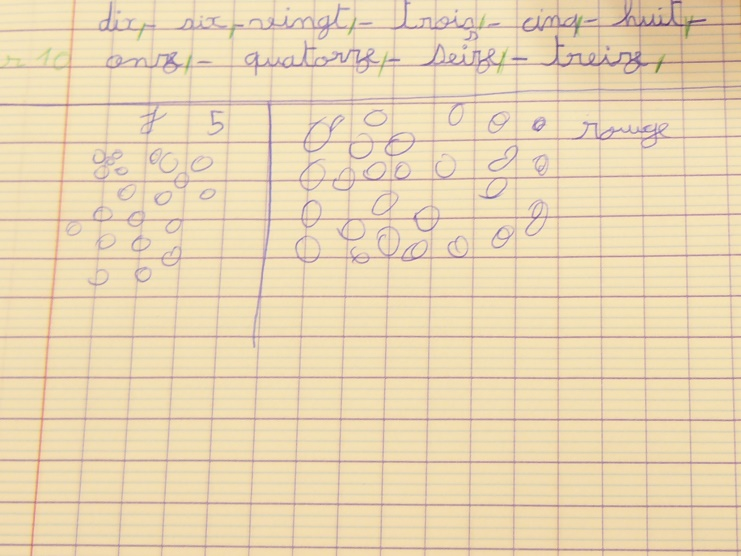 dix, - six, - vingt, - trois, - cinq, - huit, -
r 10 onze, - quatorze, - seize, - treize,
7 5 rouge